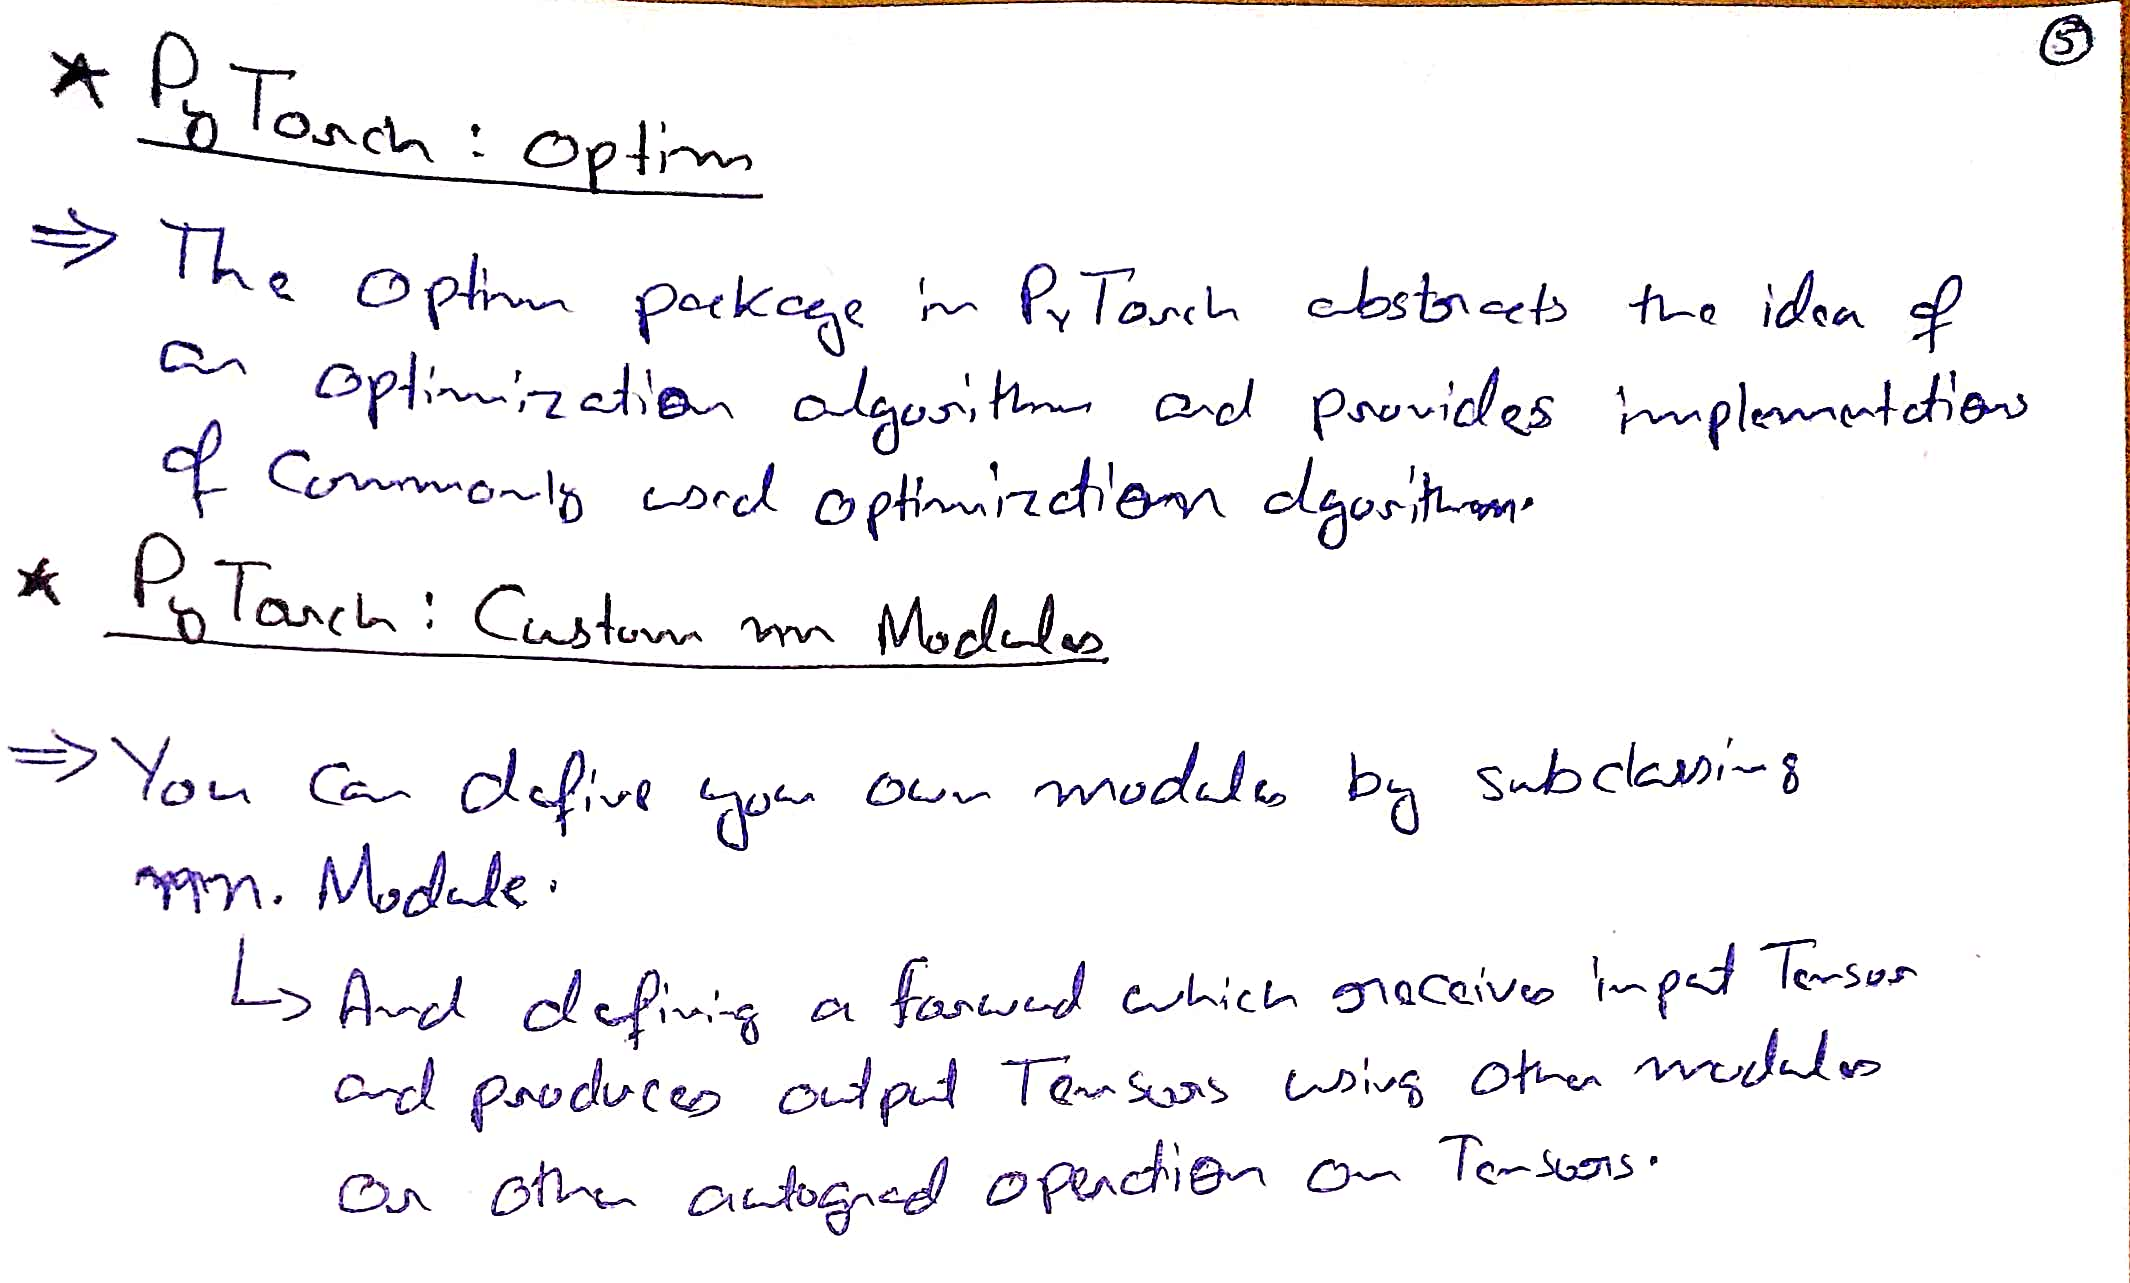 ⑤
* PyTorch : Optim
⇒ The optim package in PyTorch abstracts the idea of
an optimization algorithm and provides implementations
of commonly used optimization algorithms.
* PyTorch : Custom nn Modules
⇒ You can define your own modules by subclassing
nn. Module.
↳ And defining a forward which receives input Tensor
and produces output Tensors using other modules
or other autograd operation on Tensors.